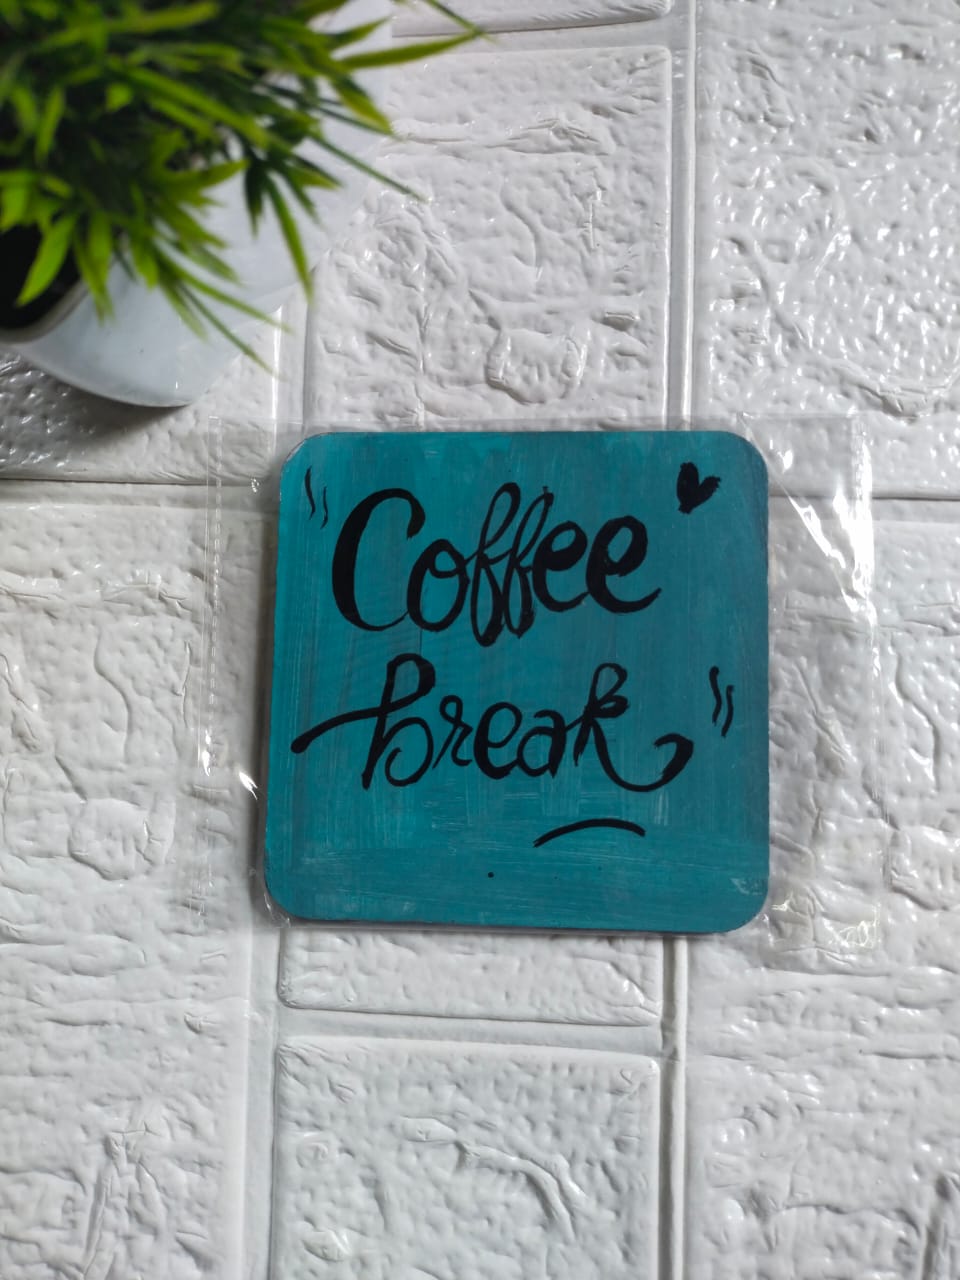 Coffee
break